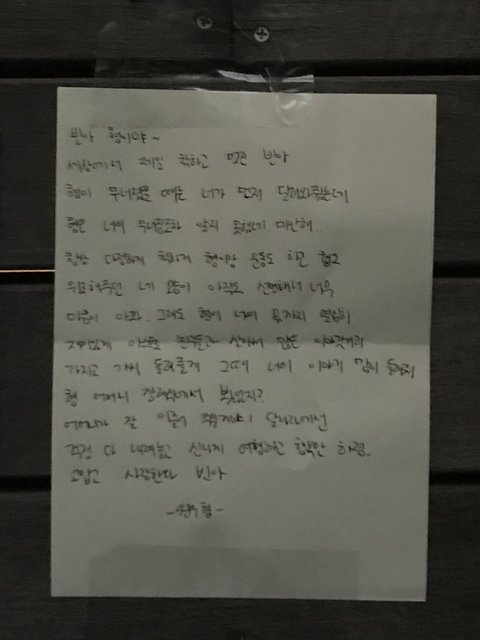 빈아 형이야~
세상에서 제일 착하고 멋진 빈아
형이 무너졌을 때는 너가 먼저 달려와줬는데
형은 너의 무너짐조차 알지 못했네 미안해..
항상 다정하게 착하게 형이랑 운동도 하고
위로해주던 네 모습이 아직도 선명해서 너무
마음이 아파. 그래도 형이 너의 몫까지 열심히
재미있게 아스트로 친구들과 살아서 많은 이야깃거리
가지고 가서 들려줄게 그때 너의 이야기 많이 들려줘
형 어머니 장례식에서 봤었지?
어머니가 잘 이끌어 주실거야! 달나라에선
걱정 다 내려놓고 신나게 여행하고 행복만 하렴.
고맙고 사랑한다 빈아